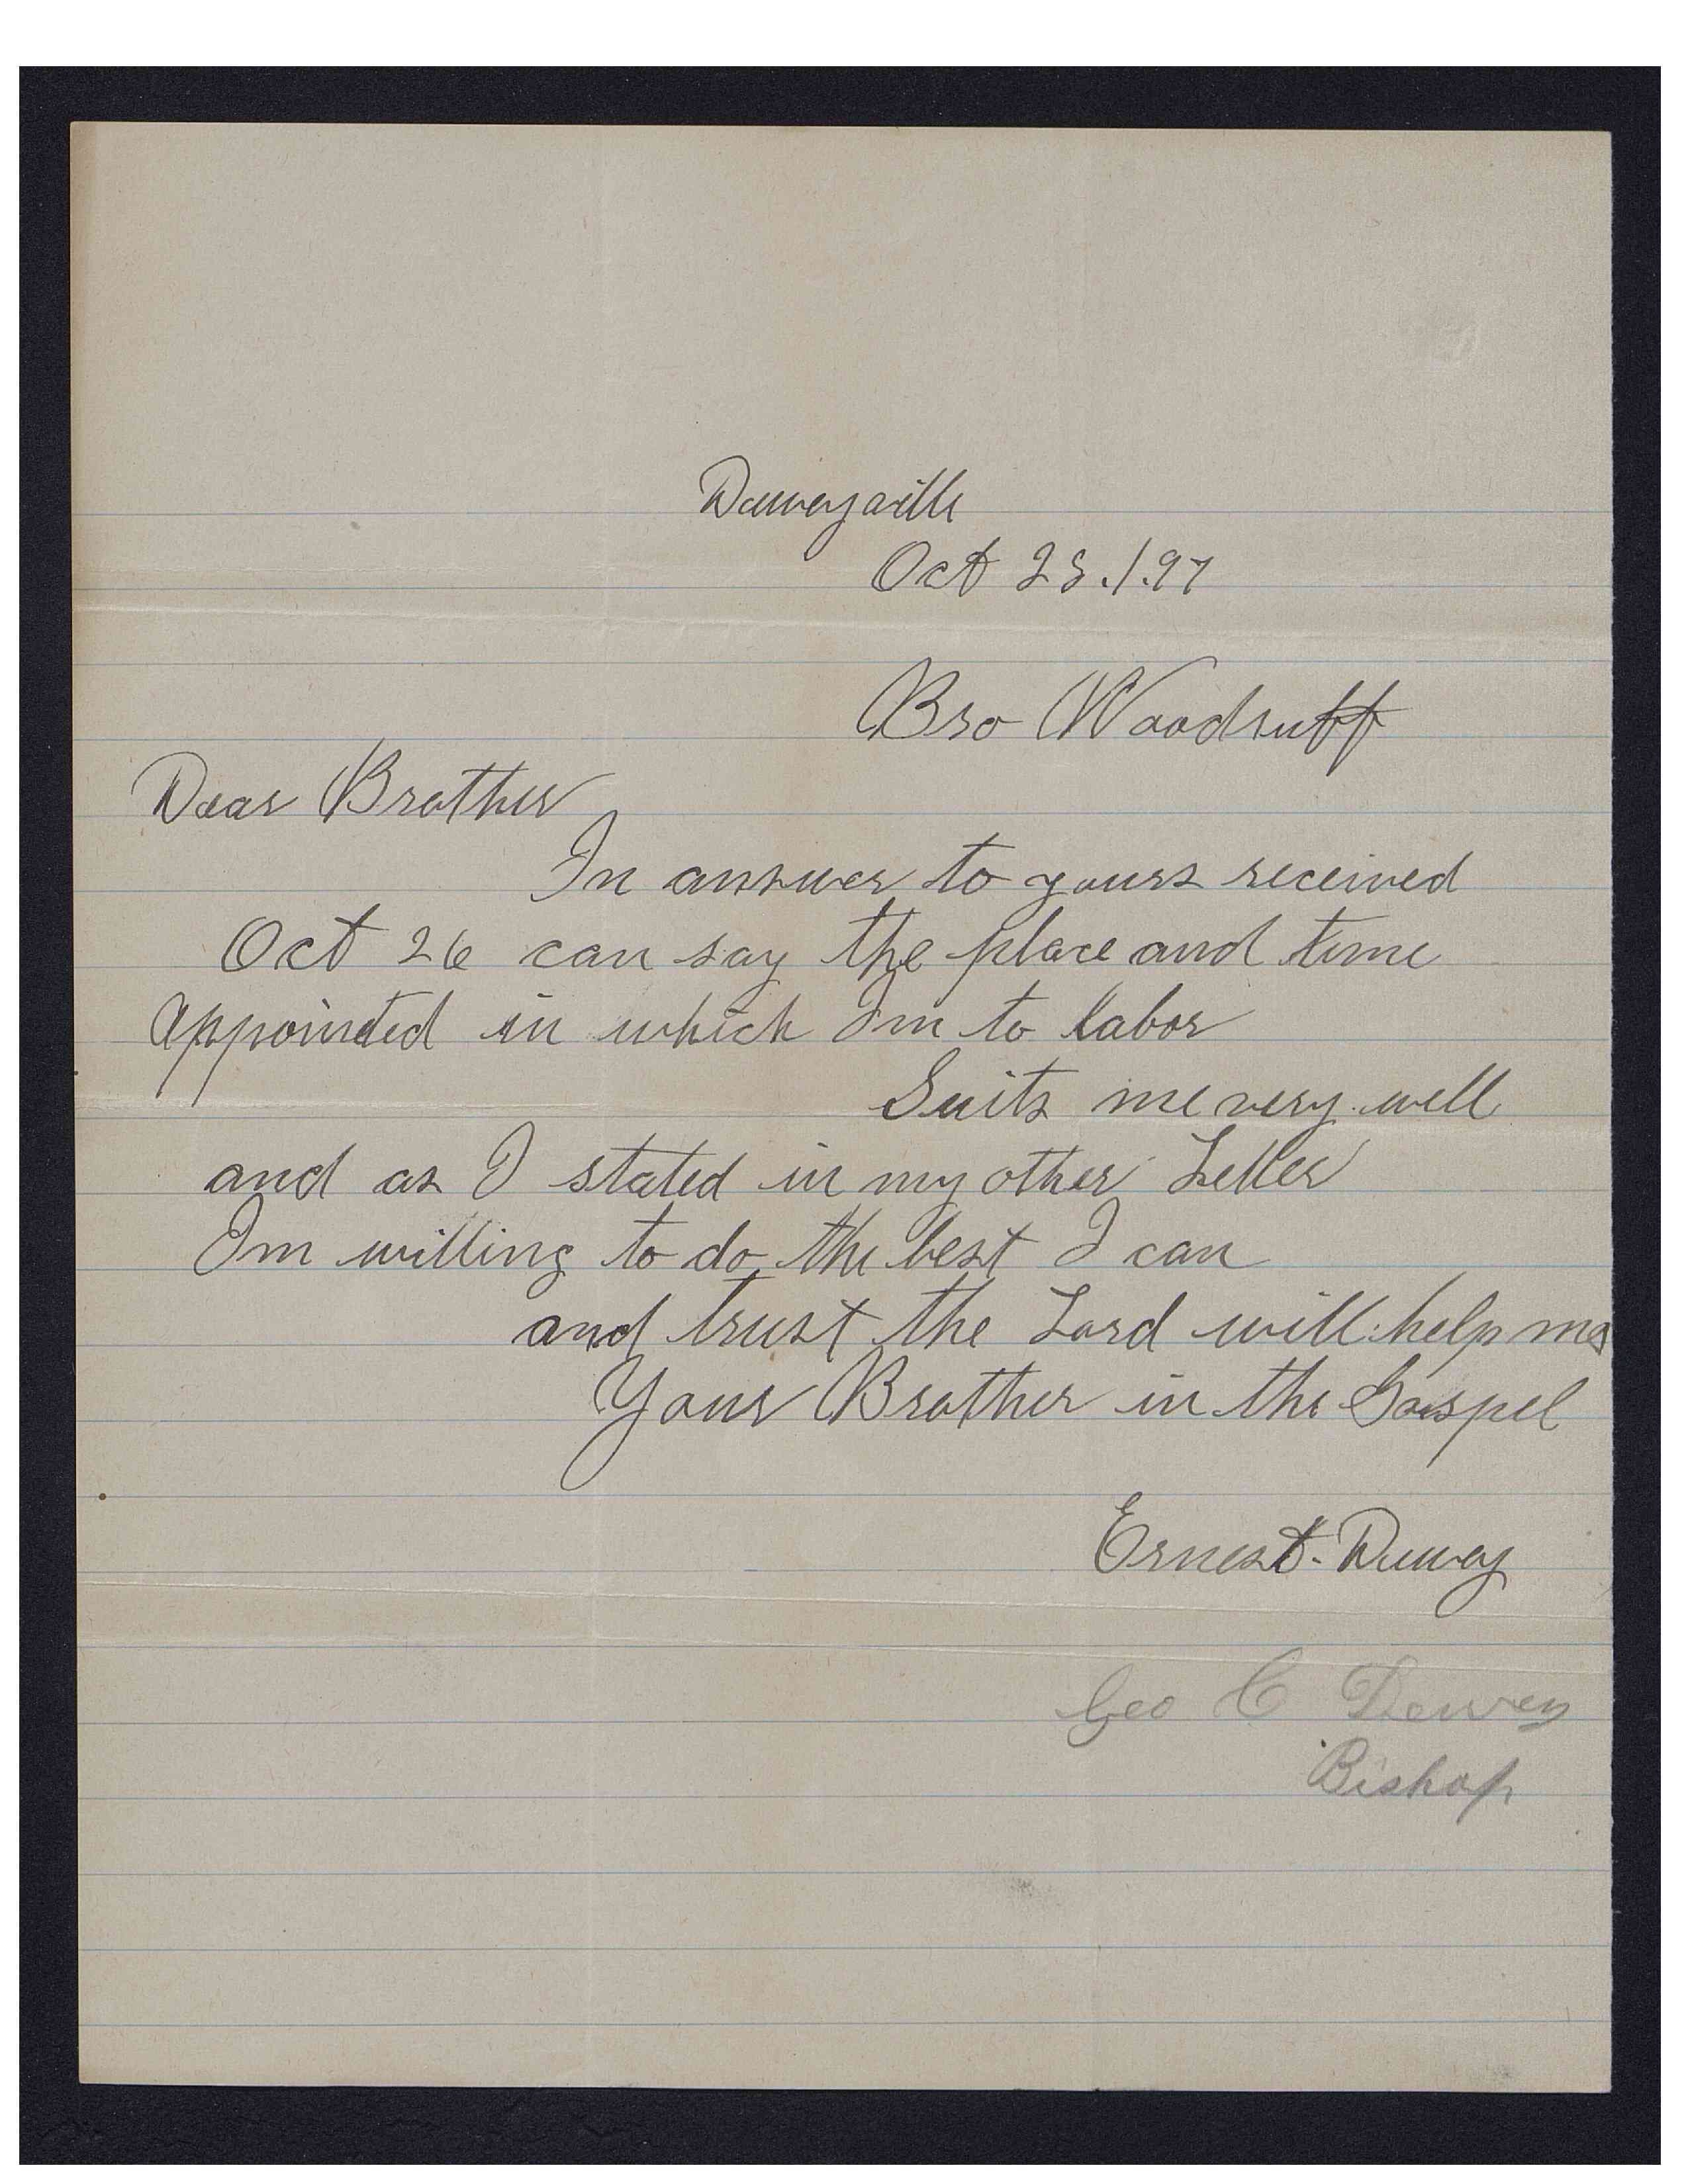 Deweyville
Oct 28./.97
Bro Woodruff
Dear Brother
In answer to yours received
Oct 26 can say the place and time
appointed in which Im to labor
Suits me very well
and as I stated in my other Letter
Im willing to do the best I can
and trust the Lord will help me
Your Brother in the Gospel
Ernest Dewey
Geo C Dewey
Bishop